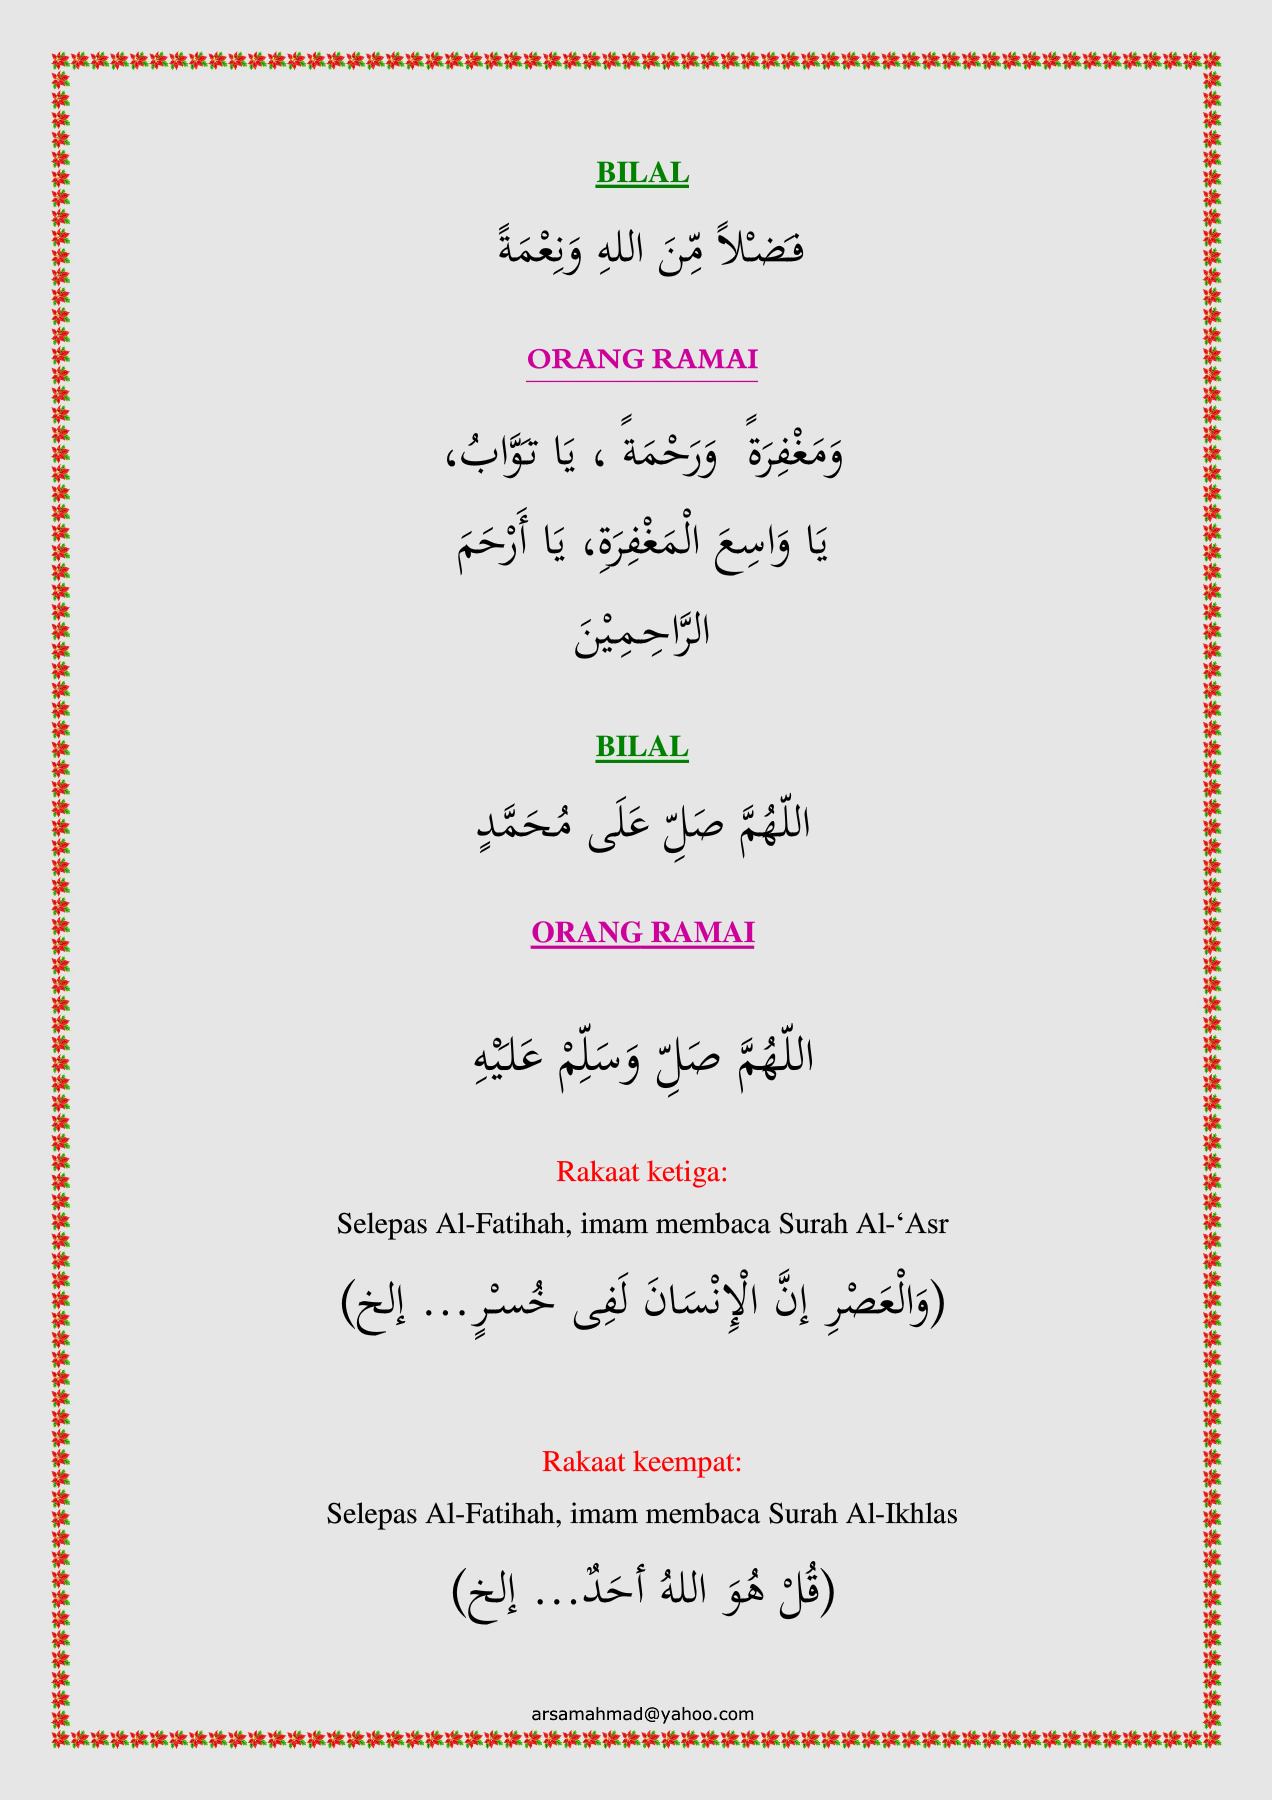 BILAL
فَضْلاً مِّنَ اللهِ وَنِعْمَةً
ORANG RAMAI
وَمَغْفِرَةً وَرَحْمَةً ، يَا تَوَّابُ،
يَا وَاسِعَ الْمَغْفِرَةِ، يَا أَرْحَمَ
الرَّاحِمِيْنَ
BILAL
اللّهُمَّ صَلِّ عَلَى مُحَمَّدٍ
ORANG RAMAI
اللّهُمَّ صَلِّ وَسَلِّمْ عَلَيْهِ
Rakaat ketiga:
Selepas Al-Fatihah, imam membaca Surah Al-‘Asr
(وَالْعَصْرِ إنَّ الْإِنْسَانَ لَفِى خُسْرٍ... إلخ)
Rakaat keempat:
Selepas Al-Fatihah, imam membaca Surah Al-Ikhlas
(قُلْ هُوَ اللهُ أحَدٌ... إلخ)
arsamahmad@yahoo.com